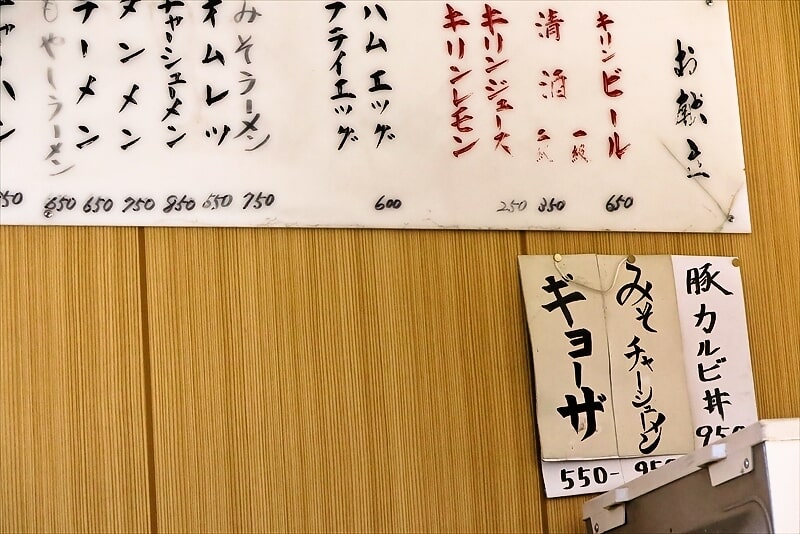 お献立
キリンビール 650
清酒 一級
二級 350
キリンジュース 250
キリンレモン
ハムエッグ 600
フライエッグ
みそラーメン 750
オムレツ 550
チャーシューメン 850
タンメン 750
ラーメン 650
もやしラーメン 650
チャーハン 850
豚カルビ丼 950
みそチャーシューメン 950
ギョーザ 550-